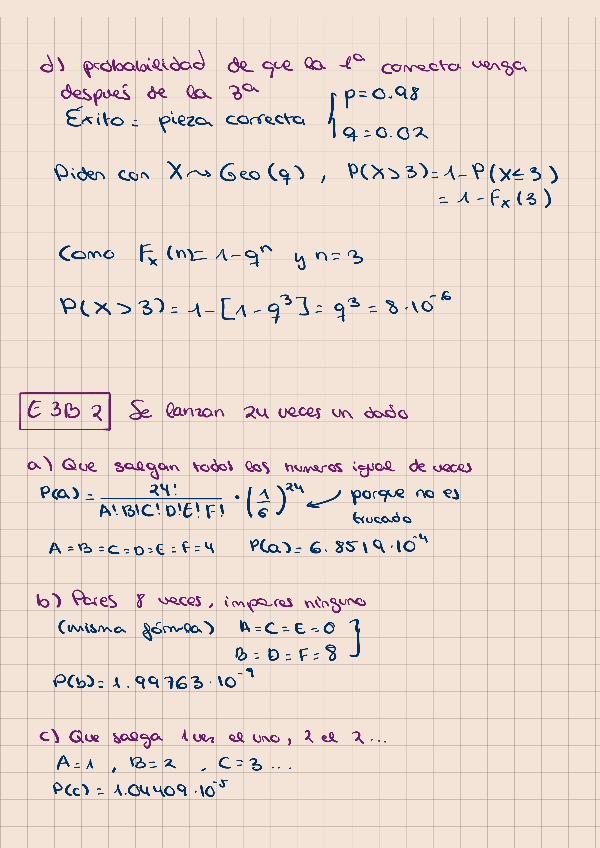 d) probabilidad de que la 1ª correcta venga
después de la 3ª
Éxito = pieza correcta { p = 0.98
q = 0.02
Piden con X ⇝ Geo(q), P(X>3) = 1 - P(X≤3)
= 1 - Fx(3)
Como Fx(n) = 1 - qⁿ y n = 3
P(X>3) = 1 - [1 - q³] = q³ = 8·10⁻⁶
E3B2 Se lanzan 24 veces un dado
a) Que salgan todos los numeros igual de veces
P(a) = 24! / A!B!C!D!E!F! · (1/6)²⁴ ← porque no es
trucado
A = B = C = D = E = F = 4 P(a) = 6.8519·10⁻⁴
b) Pares 8 veces, impares ninguno
(misma fórmula) A = C = E = 0
B = D = F = 8
P(b) = 1.99763·10⁻⁹
c) Que salga 1 vez el uno, 2 el 2...
A = 1, B = 2, C = 3...
P(c) = 1.04409·10⁻⁵